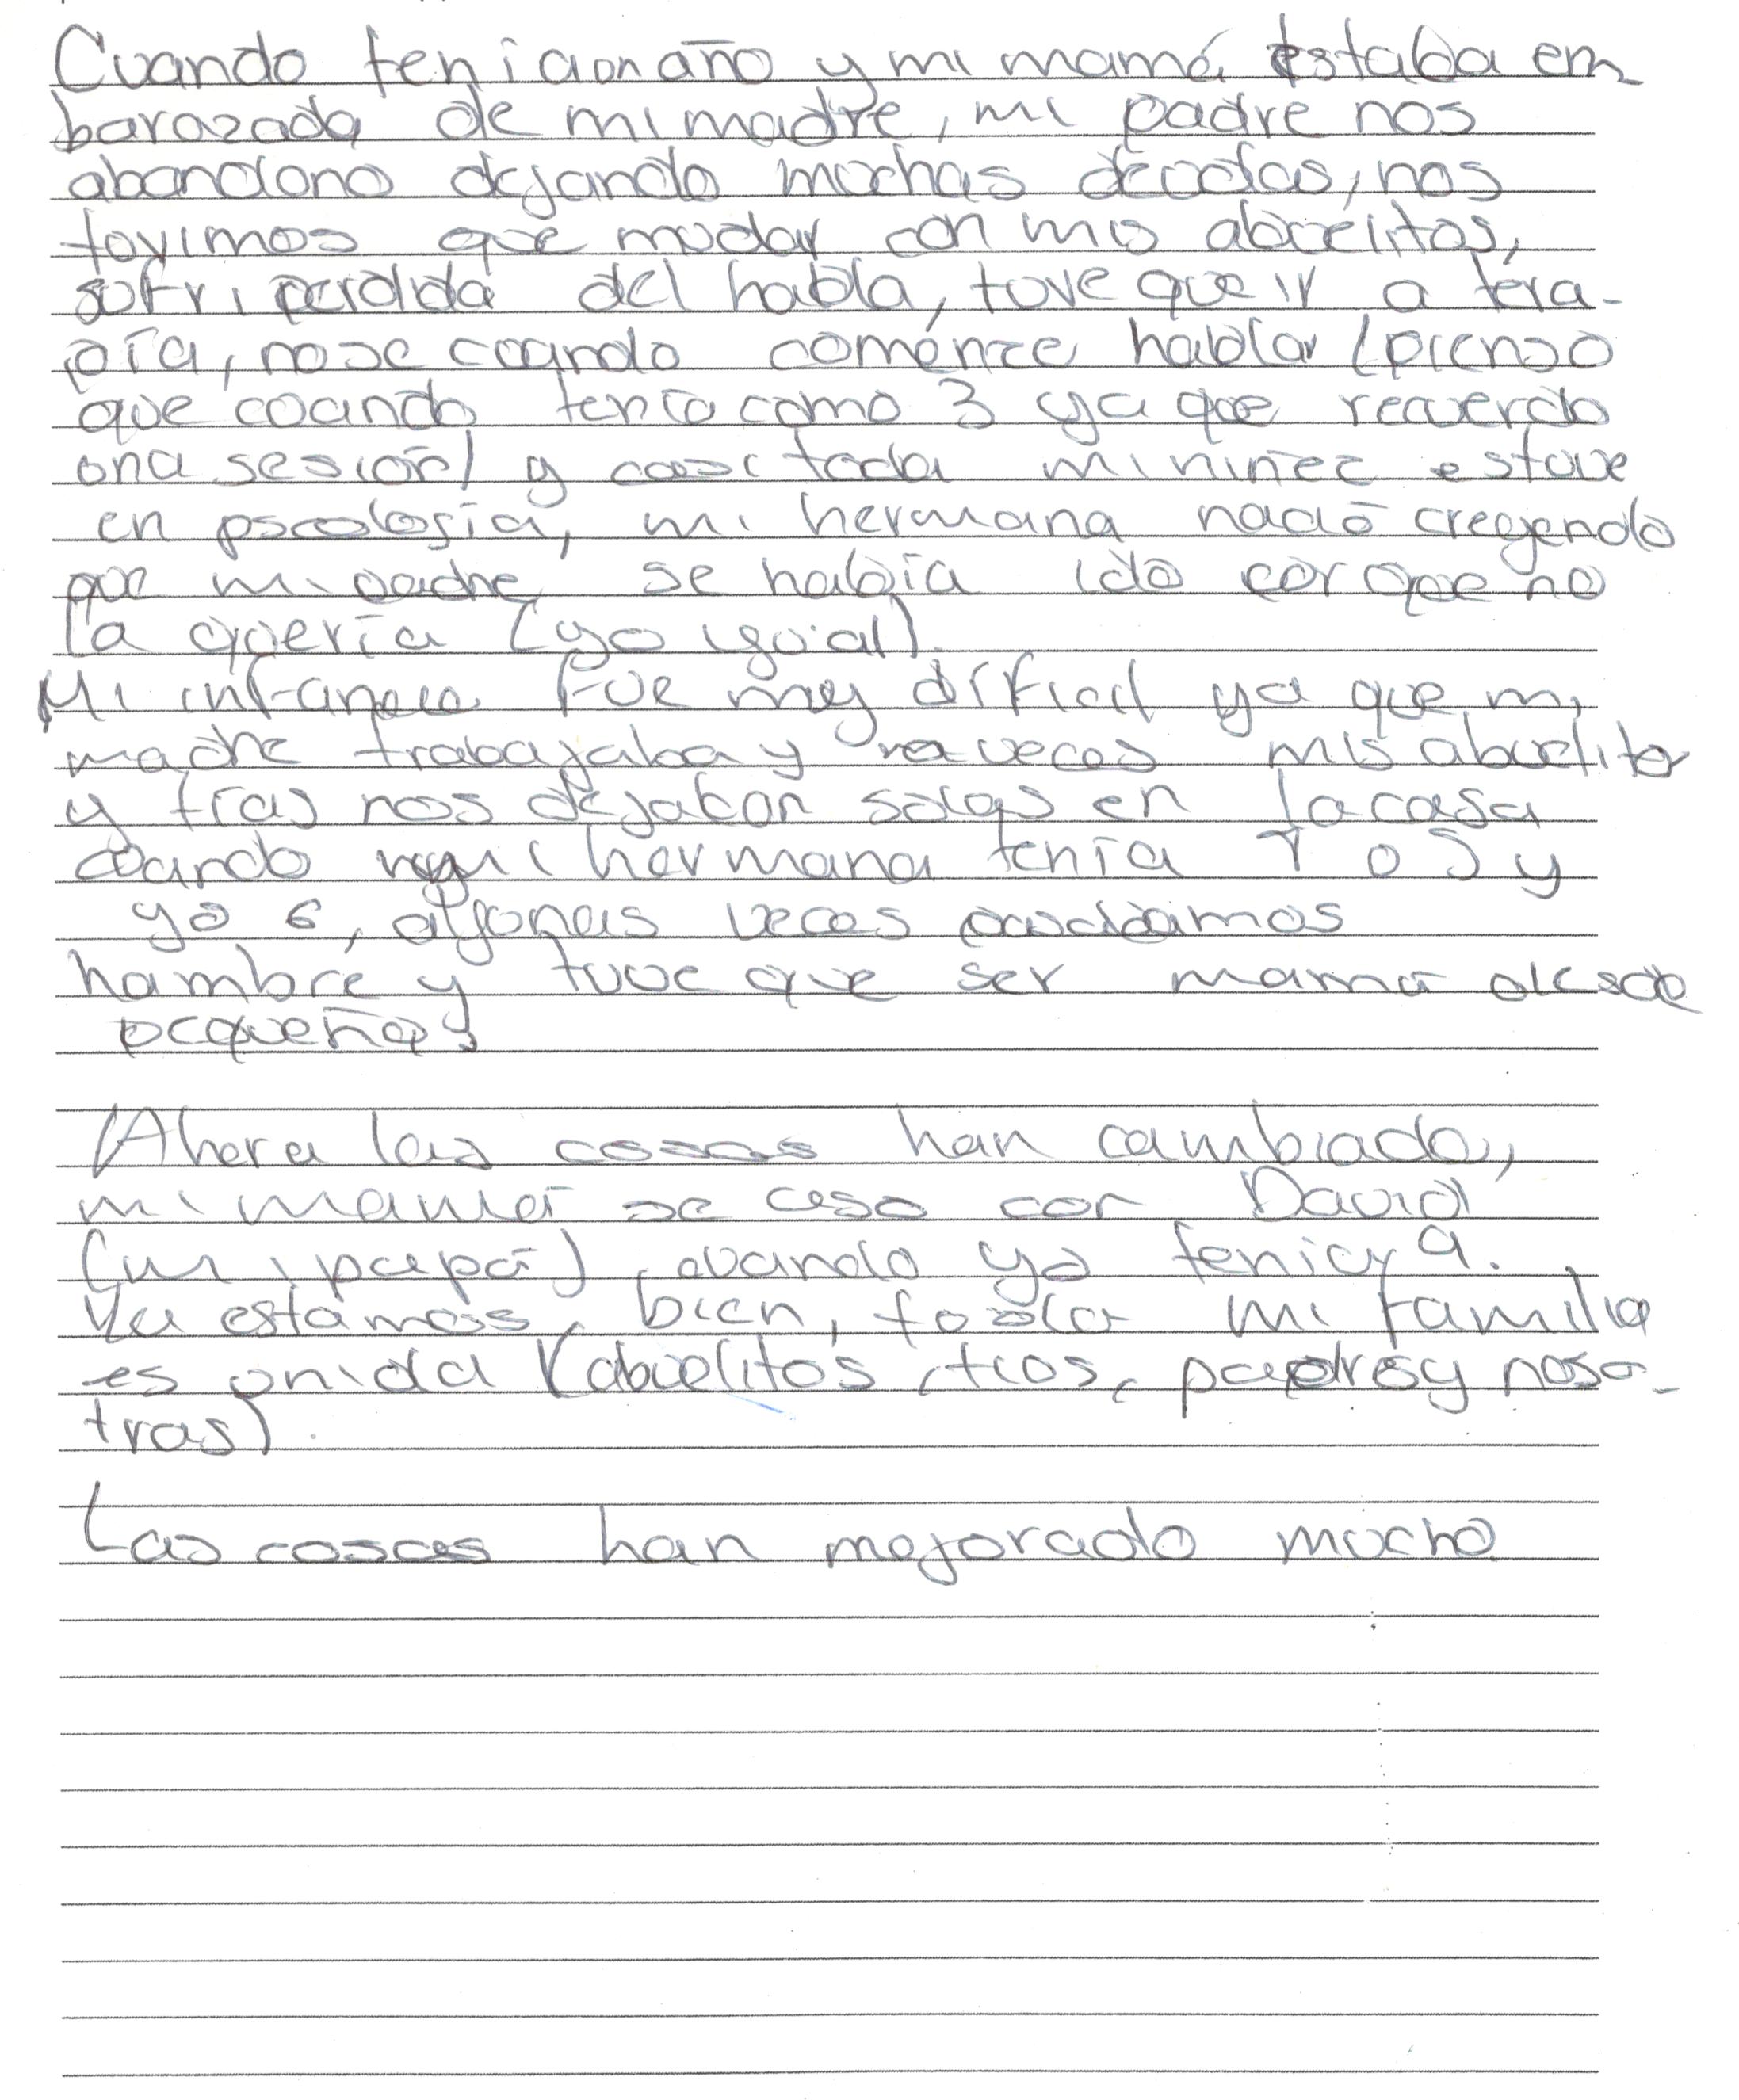 Cuando tenia un año y mi mamá estaba em
barazada de mi madre, mi padre nos
abandono dejando muchas deudas, nos
tuvimos que mudar con mis abuelitos,
sufri perdida del habla, tuve que ir a tera-
pía, no se cuando coménze hablar (pienso
que cuando tenia como 3 ya que recuerdo
una sesión) y casi toda mi niñez estuve
en pscología, mi hermana nació creyendo
que mi padre se había ido porque no
la quería (yo igual).
Mi infancia fue muy dífícil ya que mi
madre trabajaba y a veces mis abuelitos
y tías nos dejaban solas en la casa
cuando mi hermana tenía 4 o 5 y
yo 6, algunas veces pasabamos
hambre y tuve que ser mamá desde
pequeña,
Ahora las cosas han cambiado,
mi mamá se caso con David
(mi papá), cuando yo tenia 9.
Ya estámos bien, toda mi familia
es unida (abuelitos, tios, padres y noso-
tras).
Las cosas han mejorado mucho